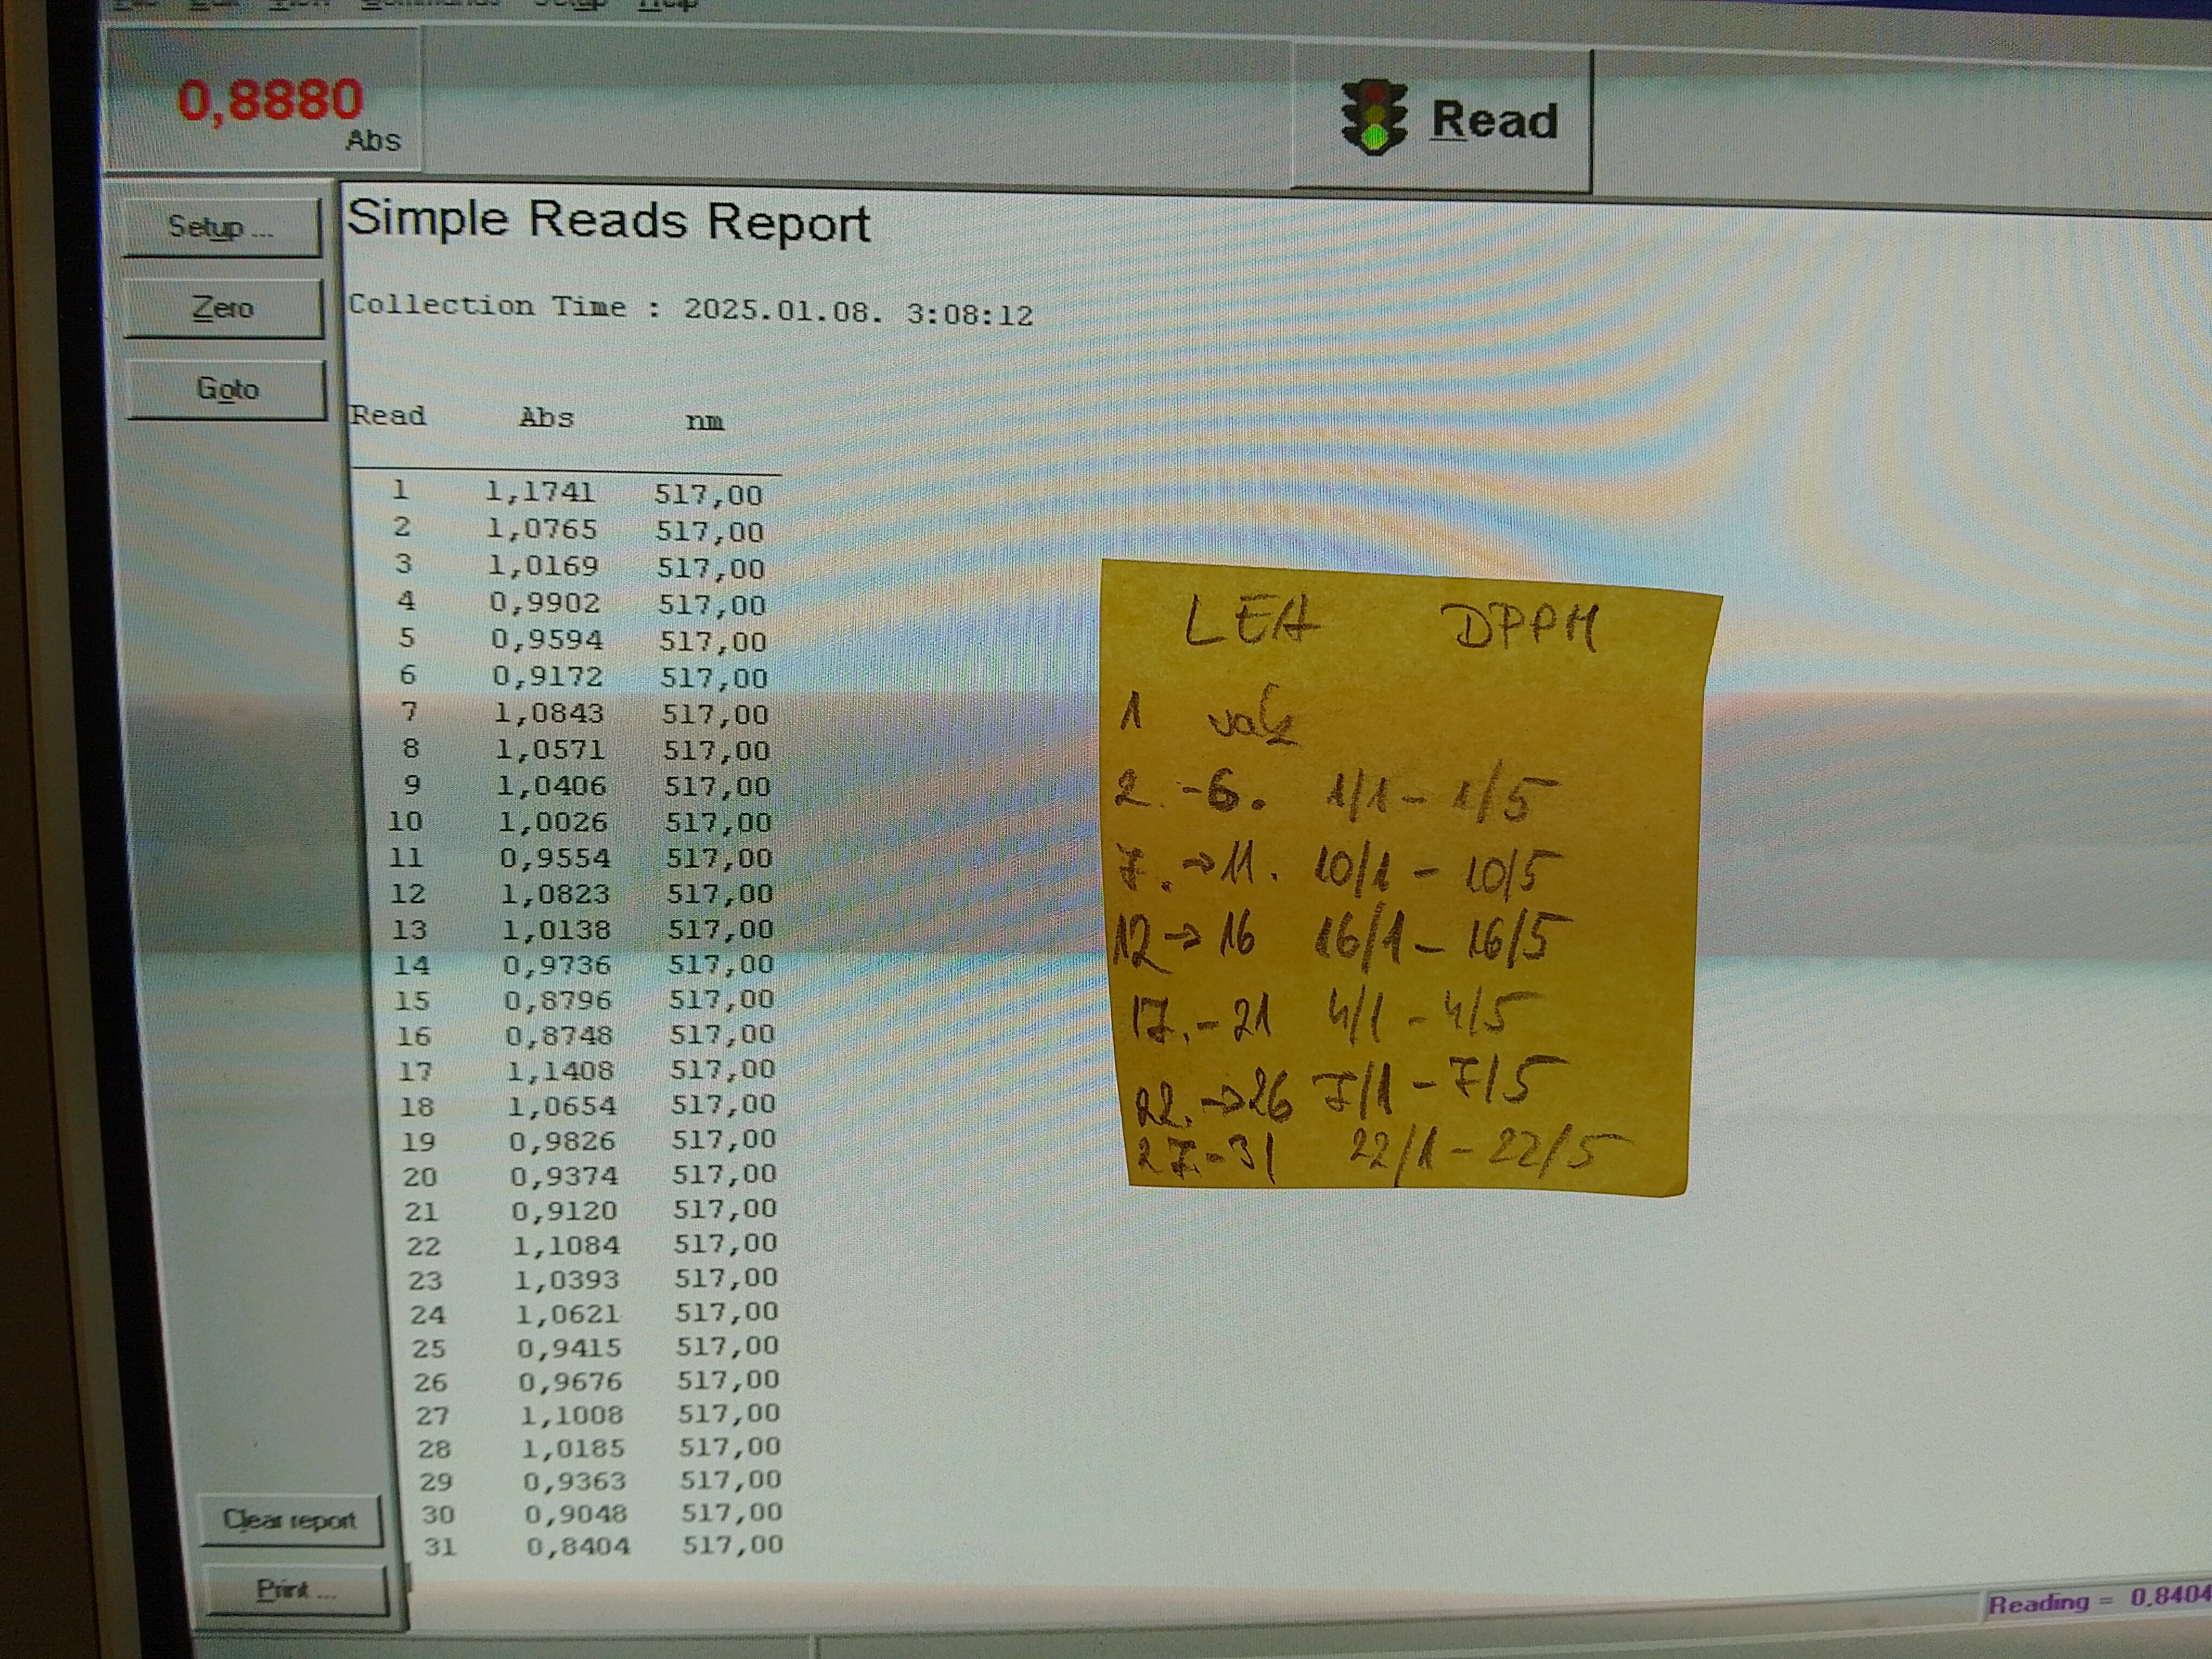 0,8880
Abs
Read
Setup ...
Zero
Goto
Simple Reads Report
Collection Time : 2025.01.08. 3:08:12
Read Abs nm
1 1,1741 517,00
2 1,0765 517,00
3 1,0169 517,00
4 0,9902 517,00
5 0,9594 517,00
6 0,9172 517,00
7 1,0843 517,00
8 1,0571 517,00
9 1,0406 517,00
10 1,0026 517,00
11 0,9554 517,00
12 1,0823 517,00
13 1,0138 517,00
14 0,9736 517,00
15 0,8796 517,00
16 0,8748 517,00
17 1,1408 517,00
18 1,0654 517,00
19 0,9826 517,00
20 0,9374 517,00
21 0,9120 517,00
22 1,1084 517,00
23 1,0393 517,00
24 1,0621 517,00
25 0,9415 517,00
26 0,9676 517,00
27 1,1008 517,00
28 1,0185 517,00
29 0,9363 517,00
30 0,9048 517,00
31 0,8404 517,00
LEA DPPH
1 vak
2. -6. 1/1 - 1/5
7. →11. 10/1 - 10/5
12 → 16 16/1 - 16/5
17. - 21 4/1 - 4/5
22. →26 7/1 - 7/5
27. - 31 22/1 - 22/5
Clear report
Print ...
Reading = 0,8404